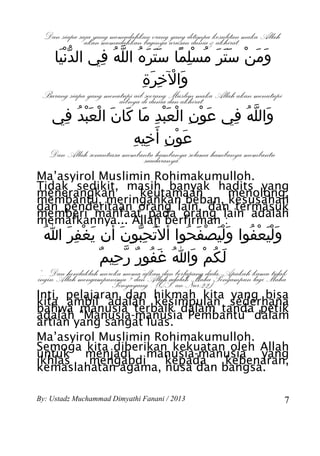 Dan siapa saja yang memudahkan orang yang ditimpa kesulitan maka Allah
akan memudahkan baginya urusan dunia & akhirat
وَمَنْ سَتَرَ مُسْلِمًا سَتَرَهُ اللَّهُ فِي الدُّنْيَا
وَالْآخِرَةِ
Barang siapa yang menutupi aib seorang Muslim maka Allah akan menutupi
aibnya di dunia dan akhirat
وَاللَّهُ فِي عَوْنِ الْعَبْدِ مَا كَانَ الْعَبْدُ فِي
عَوْنِ أَخِيهِ
Dan Allah senantiasa membantu hambanya selama hambanya membantu
saudaranya
Ma'asyirol Muslimin Rohimakumulloh.
Tidak sedikit, masih banyak hadits yang
menerangkan keutamaan menolong,
membantu, meringankan beban, kesusahan
dan penderitaan orang lain, dan termasuk
memberi manfaat pada orang lain adalah
memaafkannya... Allah berfirman :
وَلْيَعْفُوا وَلْيَصْفَحُوا أَلَا تُحِبُّونَ أَن يَغْفِرَ اللهُ
لَكُمْ وَاللهُ غَفُورٌ رَّحِيمٌ
Inti pelajaran dan hikmah kita yang bisa
kita ambil adalah kesimpulan sederhana
bahwa manusia terbaik dalam tanda petik
adalah "Manusia-manusia Pembantu" dalam
artian yang sangat luas.
Ma'asyirol Muslimin Rohimakumulloh.
Semoga kita diberikan kekuatan oleh Allah
untuk menjadi manusia-manusia yang
ikhlas mengabdi kepada kebenaran,
kemaslahatan agama, nusa dan bangsa.
By: Ustadz Muchammad Dimyathi Fanani / 2013 7